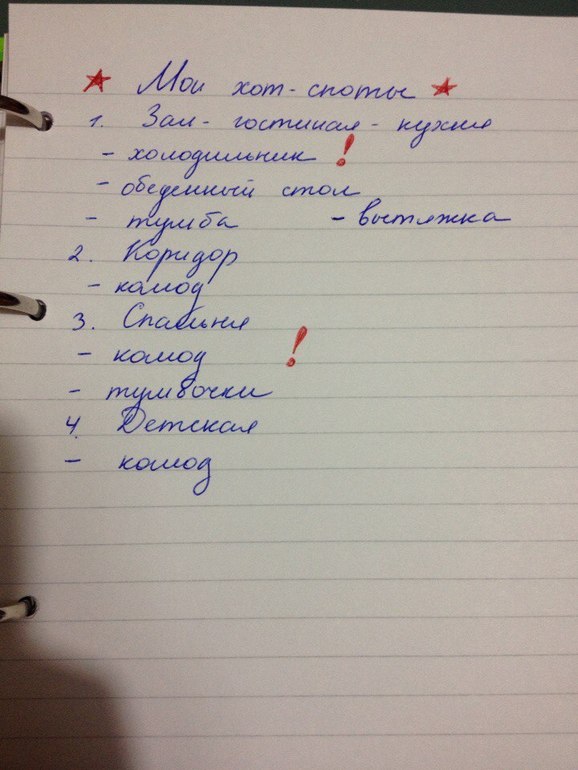 ★ Мои хот-споты ★
1. Зал - гостиная - кухня
- холодильник !
- обеденный стол
- тумба - вытяжка
2. Коридор
- комод
3. Спальня
- комод !
- тумбочки
4. Детская
- комод